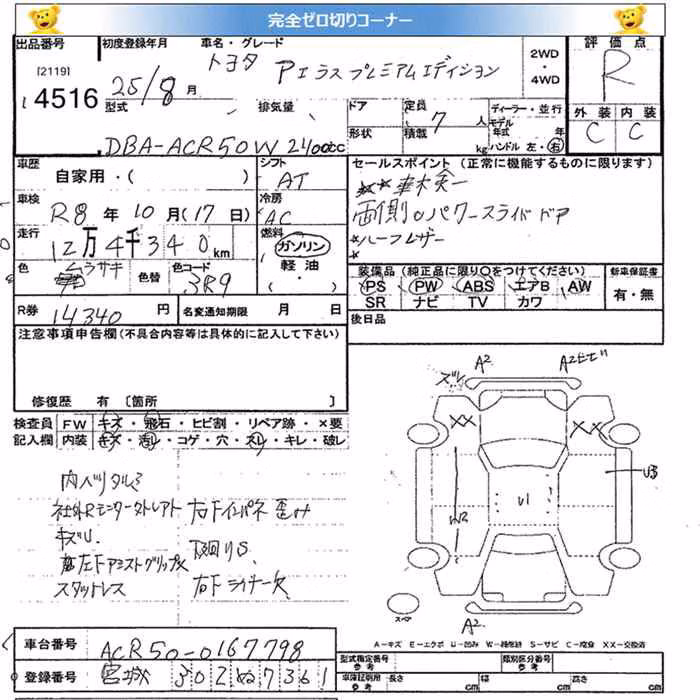 完全ゼロ切りコーナー
出品番号 初度登録年月 車名・グレード 2WD ・ 4WD 評価点
[2119] 4516 25/8 月 トヨタ Pエラス プレミアムエディション R
型式 排気量 ドア 定員 7 人 ディーラー・並行 外装 内装
DBA-ACR50W 2400cc 形状 積載 kg モデル年式 年 ハンドル 左・右 C C
車歴 シフト セールスポイント (正常に機能するものに限ります)
自家用・( ) AT
車検 冷房 両側パワースライドドア
R8 年 10 月 (17 日) AC
走行 燃料 *ハーフレザー
12万4千340km ガソリン
色 ムラサキ 色替 色コード 3R9 軽油 ・( ) 装備品 (純正品に限り○をつけてください) 新車保証書
PS PW ABS エアB AW 有・無
SR ナビ TV カワ
R券 14340 円 名変通知期限 月 日 後日品
注意事項申告欄(不具合内容等は具体的に記入して下さい)
修復歴 有 〔箇所 〕
検査員 FW キズ・飛石・ヒビ割・リペア跡・×要
記入欄 内装 キズ・汚レ・コゲ・穴・スレ・キレ・破レ
ズレ A2 A2
XX XX
U3
U1
W2
社外Rモニター 右下インパネ 歪み
キズU 下回りS
左下アシストグリップ×
スタットレス 右下ライナー欠
スペア A2
A-キズ E-エクボ U-凹み W-補修跡 S-サビ C-腐食 XX-交換済
車台番号 ACR50-0167798
登録番号 宮城 302 ぬ 7361
型式指定番号 参考 類別区分番号 参考
車庫証明用 参考 長さ cm 幅 cm 高さ cm